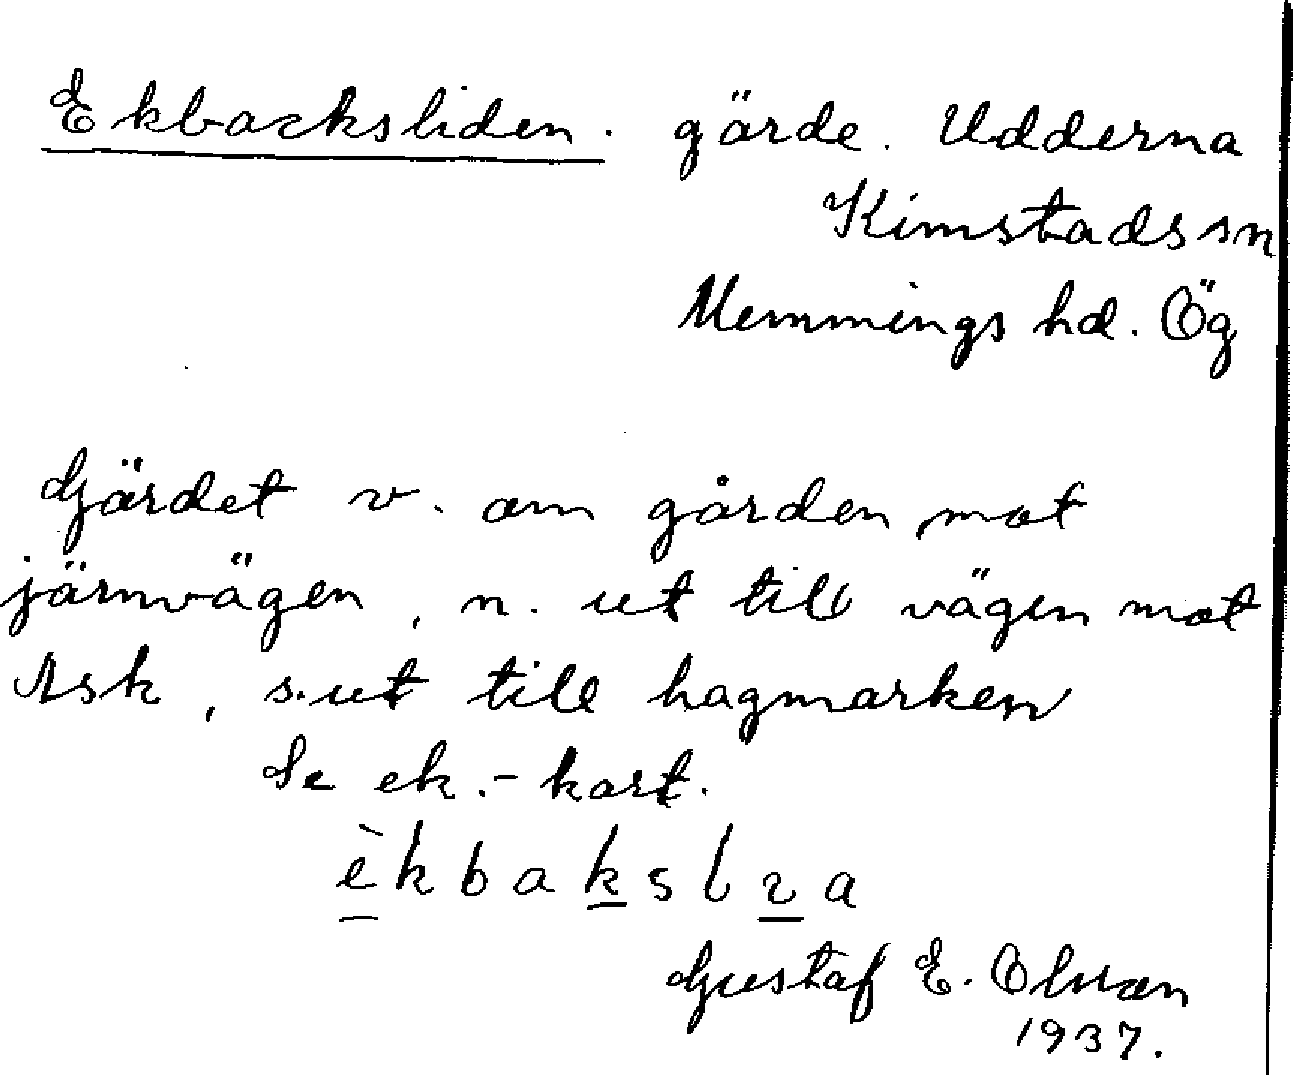 Ekbacksliden. gärde. Udderna
Kimstads sn
Memmings hd. Ög
Gärdet v. om gården, mot
järnvägen, n. ut till vägen mot
Ask, s. ut till hagmarken
Se ek.-kart.
èkbakslıa
Gustaf E. Olsson
1937.